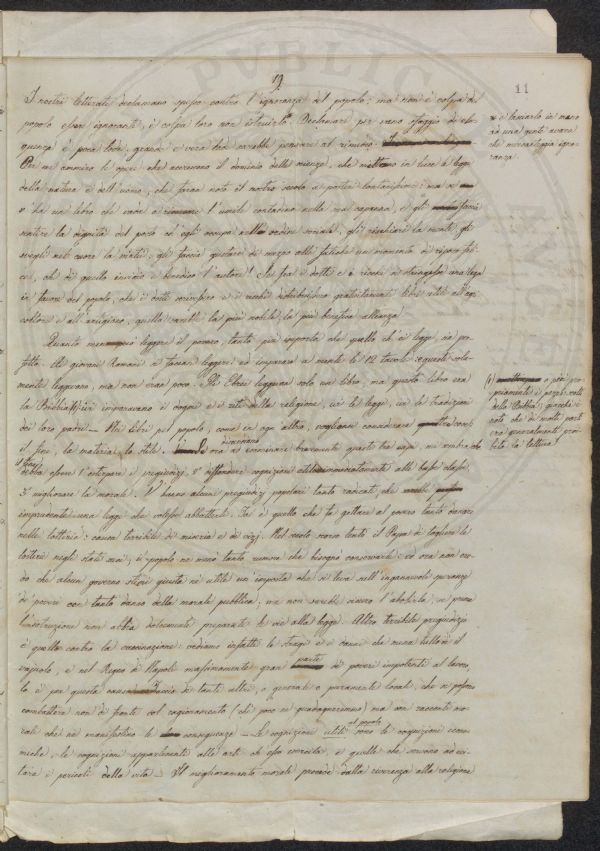 19
11
I nostri letterati declamano spesso contro l'ignoranza del popolo; ma non è colpa del
popolo esser ignorante, è colpa loro non istruirlo. Declamare per vano sfoggio di elo-
quenza è poca lode, grande e vera lode sarebbe pensare al rimedio.
Per me ammiro le opere che accrescono il dominio delle scienze, che mettono in luce le leggi
della natura e dell'uomo, che faran noto il nostro secolo ai posteri; ma se
v'ha un libro che vada a rinvenire l'umile contadino nella sua capanna, e gli faccia
sentire la dignità del posto ch'egli occupa nell'ordine sociale, gli rischiari la mente, gli
svegli nel cuore la virtù, gli faccia gustare di mezzo alle fatiche un momento di riposo feli-
ce, oh di quello invidio e benedico l'autore! Se fra i dotti e i ricchi si stringesse una lega
in favore del popolo, che i dotti scrivessero e i ricchi distribuissero gratuitamente libri utili all'agri-
coltore e all'artigiano, quella sarebbe la più nobile la più benefica alleanza
Quanto meno può leggere il povero, tanto più importa che quello ch'ei legge, sia per-
fetto. Ai giovani Romani si facean leggere ed imparare a mente le 12 tavole: queste sola-
mente leggevano, ma non eran poco. Gli Ebrei leggevano solo un libro, ma questo libro era
la Bibbia (1): ivi imparavano i dogmi e i riti della religione, ivi le leggi, ivi le tradizioni
dei loro padri — Nei libri pel popolo, come in ogni altro, vogliono considerarsi
il fine, la materia, lo stile. ora ad esaminare brevemente queste tre cose, mi sembra che
il fine
debba essere l'estirpare i pregiudizj, 2° diffondere cognizioni utili immediatamente alla bassa classe,
3° migliorare la morale. V'hanno alcuni pregiudizj popolari tanto radicati che sarebbe
imprudente una legge che volesse abbatterli. Tal è quello che fa gettare al povero tanto danaro
nelle lotterie: causa terribile di miseria e di vizj. Nel secolo scorso tentò il Papa di togliere le
lotterie negli stati suoi; il popolo ne menò tanto rumore che bisognò conservarle: ed ora non cre-
do che alcun governo stimi giusta nè utile un'imposta che si leva sull'ingannevole speranza
de' poveri con tanto danno della morale pubblica; ma non sarebbe sicuro l'abolirla, se prima
l'instruzione non abbia dolcemente preparate le vie alla legge. Altro terribile pregiudizio
è quello contro la vaccinazione: vediamo infatti le stragi e i danni che mena tuttodì il
vajuolo, e nel Regno di Napoli massimamente gran
parte
di poveri impotenti al lavoro,
lo è per questa causa. di tanti altri, o generali o puramente locali, che si possono
combattere non di fronte col ragionamento (chè poco si guadagnerebbe) ma con racconti mo-
rali che ne manifestino le conseguenze — Le cognizioni utili
al popolo
sono le cognizioni econo-
miche, le cognizioni appartenenti alle arti ch'esso esercita, e quelle che servono ad evi-
tare i pericoli della vita — Il miglioramento morale procede dalla riverenza alla religione
e lasciarlo in mano
ad una gente avara
che mercanteggia igno-
ranza.
(1) o più pro-
priamente i pezzi scelti
della Bibbia; giacchè è
noto che di molte parti
era generalmente proi-
bita la lettura.